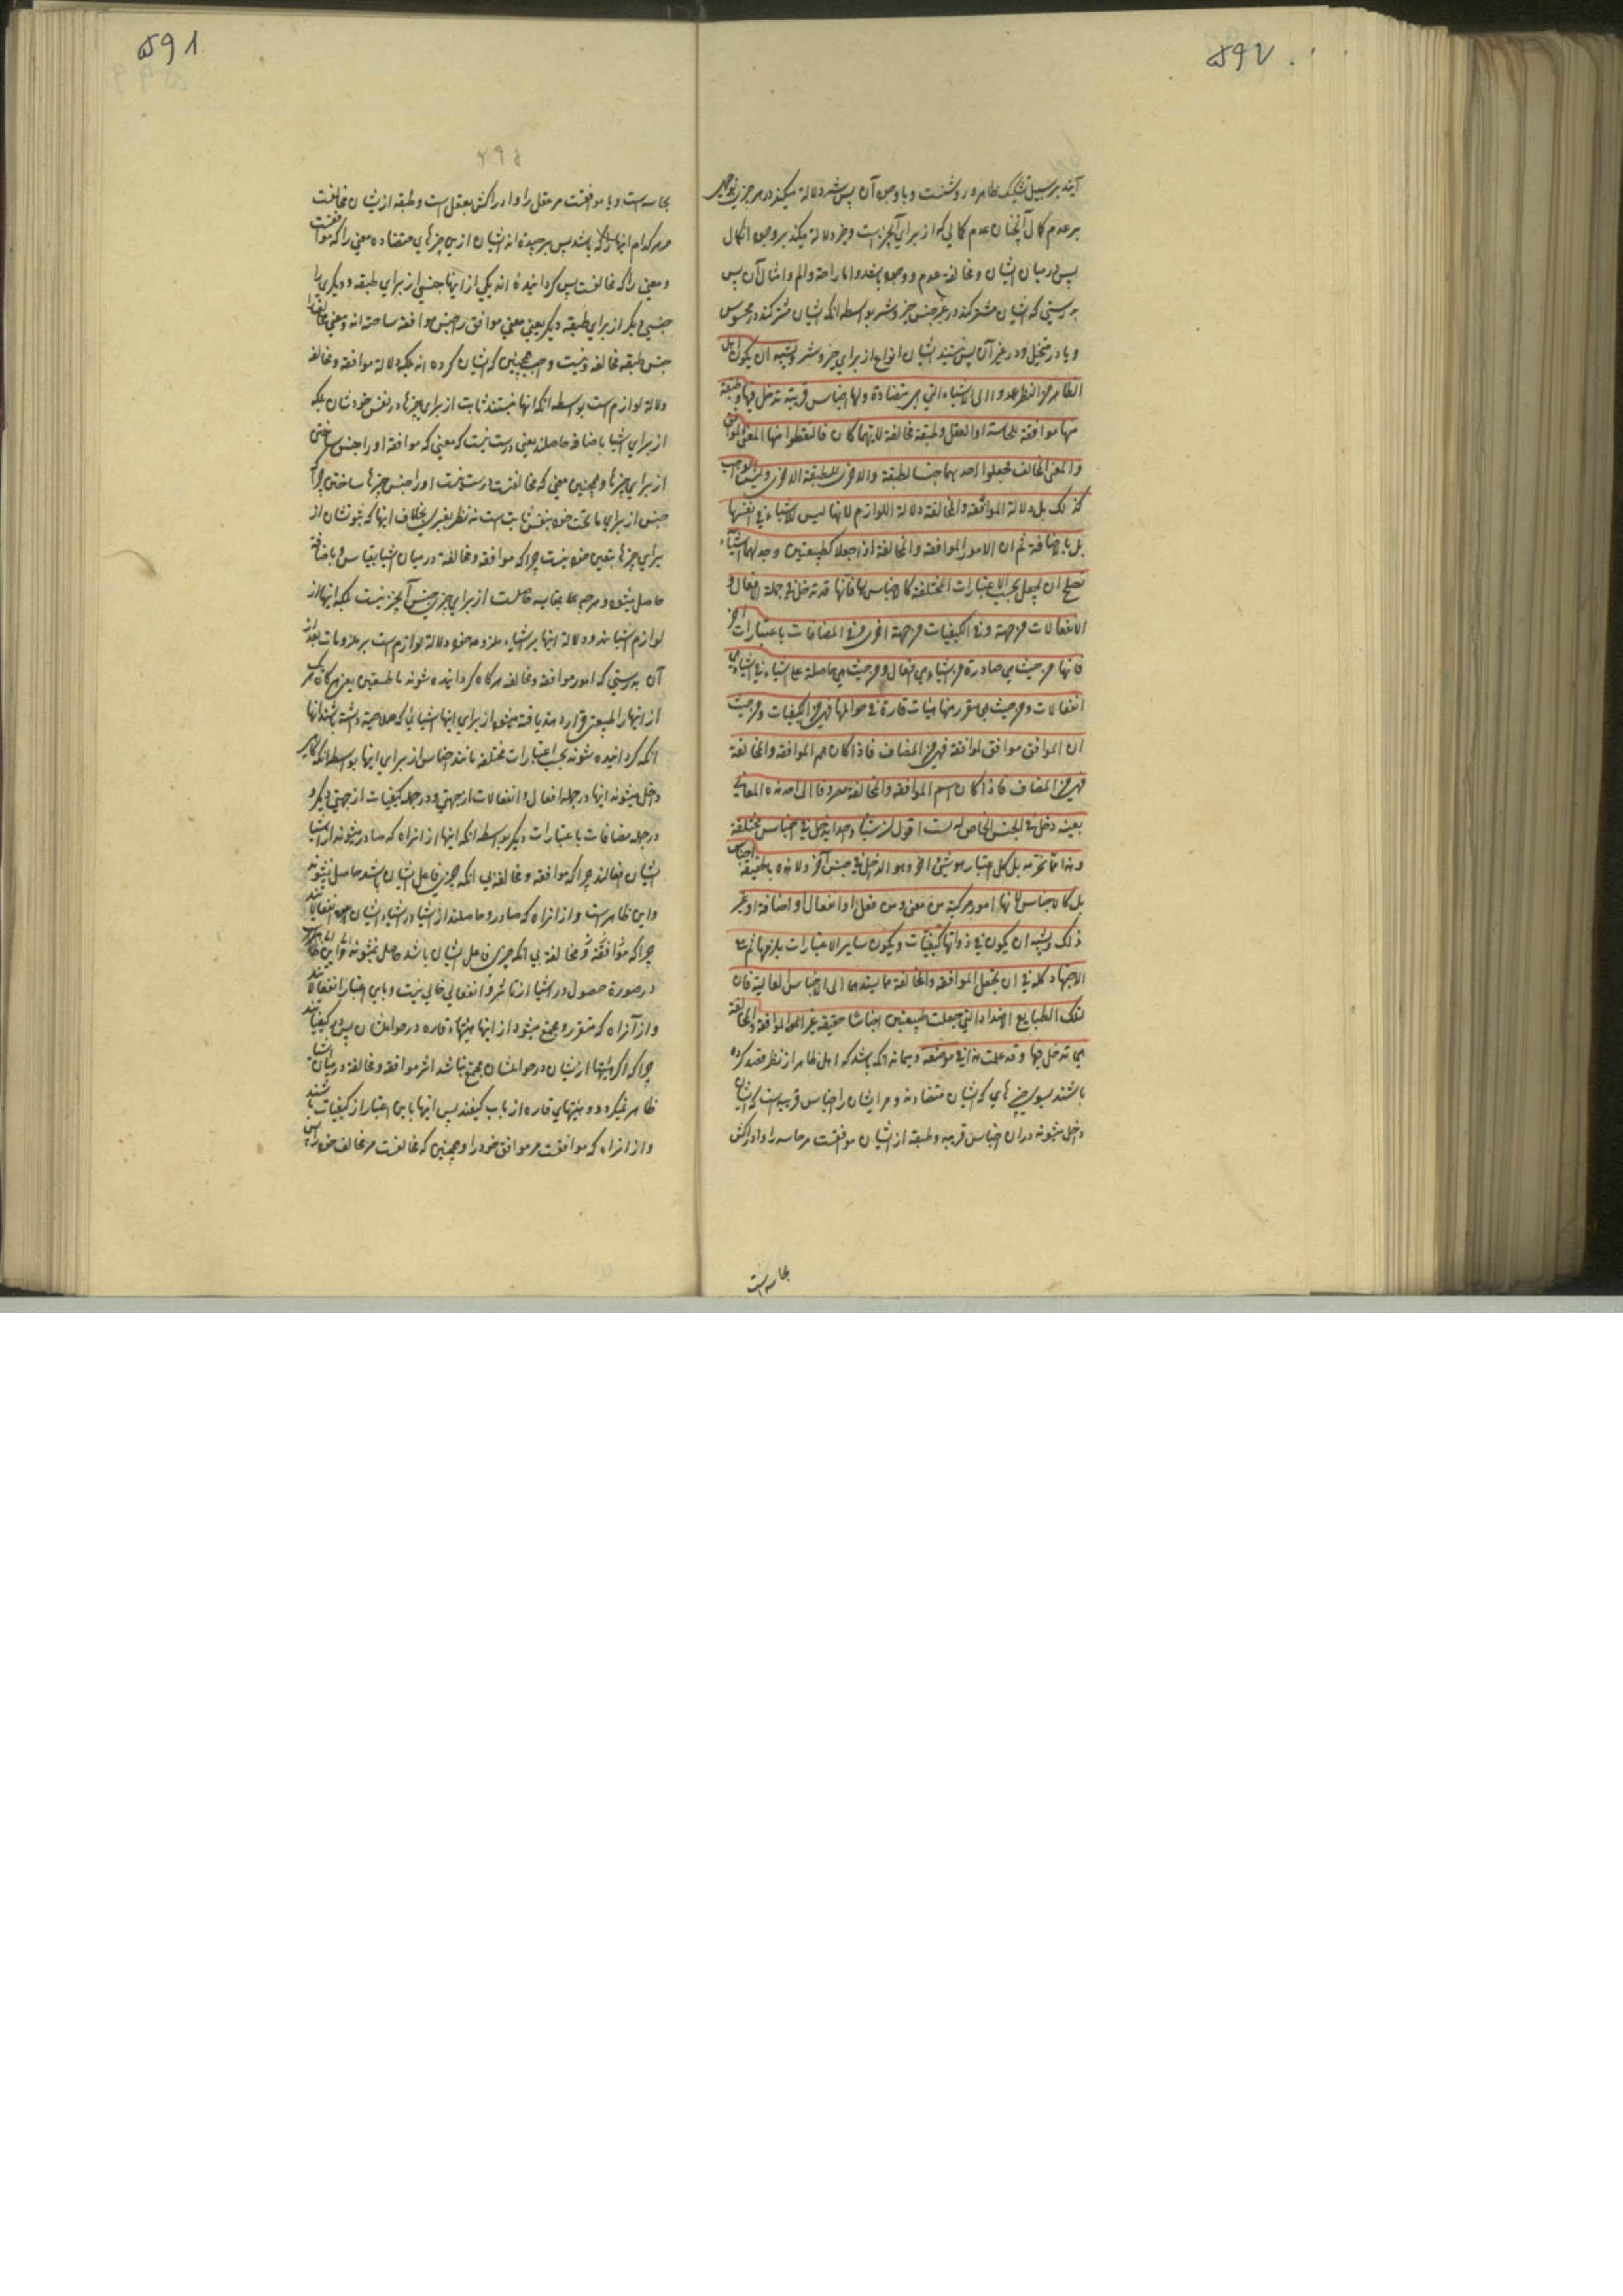 ۵۹۲
آیند بر سبیل تشکیک ظاهر و روشنست و با وجود آن پس شر دلالة میکند در هر چیزی بوجهی
بر عدم کمال آنچنان عدم کمالی که از برای آنچیزست و خیر دلالة میکند بر وجود انکمال
پس در میان ایشان و مخالفة عدم و وجود باشد و اما راحة والم و امثال آن پس
بدرستی که ایشان مشترکند در غیر جنس خیر و شر بواسطه انکه ایشان مشترکند در محسوس
و یا در متخیل و در غیر آن پس نیستند ایشان انواع از برای خیر و شر ویشبه ان یکون اهل
الظاهر من النظر عمدوا الی الاشیاء التی هی متضادة ولها اجناس قریبة تدخل فیها وطبقة
منها موافقة للحاسة او العقل وطبقة مخالفة لایهما کان فالتقطوا منها المعنی الموافق
والمعنی المخالف فجعلوا احدیهما جنسا لطبقة والاخری للطبقة الاخری ولیس الواجب
کذلک بل دلالة الموافقة والمخالفة دلالة اللوازم لانها لیس للاشیاء فی انفسها
بل بالاضافة ثم ان الامور الموافقة والمخالفة اذا جعلا کطبیعتین وجد لهما اشیاء
تصلح ان یجعل بحسب الاعتبارات المختلفة کالاجناس لها فانها قد تدخل فی جملة الافعال و
الانفعالات من جهة وفی الکیفیات من جهة اخری وفی المضافات باعتبارات اخر
فانها من حیث هی صادرة من اشیاء هی افعال ومن حیث هی حاصلة عن اشیاء فی اشیاء هی
انفعالات ومن حیث هی یتقرر منها هیئات قارة فی حواملها فهی من الکیفیات ومن حیث
ان الموافق موافق لموافقه فهی من المضاف فاذا کان اسم الموافقة والمخالفة
فهی من المضاف فاذا کان اسم الموافقة والمخالفة معروفا الی احد هذه المعانی
بعینه دخل فی الجنس الخاص له لست اقول ان شیئا واحدا یدخل فی اجناس مختلفة
وهذا مما نحرمه بل کل اعتبار هو شیئ اخر وهو الداخل فی جنس آخر ولا هذه بالحقیقة اجناس
بل کالاجناس لانها امور مرکبة من معنی ومن فعل او انفعال او اضافة او غیر
ذلک ویشبه ان یکون فی ذواتها کیفیات ویکون سایر الاعتبارات یلزمها ثم
الاجتهاد کله فی ان یجعل الموافقة والمخالفة مما یستند هما الی الاجناس العالیة فان
لتلک الطبایع الاضداد التی جعلت طبیعتین اجناسا حقیقة غیر الموافقة والمخالفة
هی تدخل فیها وقد علمت هذا فی موضعه و بماند انکه باشد که اهل ظاهر از نظر قصد کرده
باشند بسوی چیزهایی که ایشان متضادند و مر ایشان را اجناس قریبه است که ایشان
داخل میشوند در ان اجناس قریبه و طبقه از ایشان موافقست مر حاسه را و ادراکش
بحاسه است
۵۹۱
۲۹۶
بحاسه است و یا موافقست مر عقل را و ادراکش بعقل است و طبقه از ایشان مخالفست
مر هر کدام اینها را که باشد پس برچیده اند ایشان ازین چیزهای متضاده معنی را که موافقست
و معنی را که مخالفست پس گردانیده اند یکی از اینها جنسی از برای طبقه و دیگری را
جنسی دیگر از برای طبقه دیگر یعنی معنی موافق را جنس موافقه ساخته اند و معنی مخالف را
جنس طبقه مخالفه و نیست واجب همچنین که ایشان کرده اند بلکه دلالة موافقة و مخالفة
دلالة لوازم است بواسطه انکه انها نیستند ثابت از برای چیزها در نفس خودشان بلکه
از برای اشیا باضافه حاصلند یعنی درست نیست که معنی که موافقة اورا جنس ساختن
از برای چیزها و همچنین معنی که مخالفست درست نیست اورا جنس چیزها ساختن چرا که
جنس از برای ما تحت خود بنفس ثابتست نه نظر بغیری بخلاف اینها که ثبوتشان از
برای چیزها بنفس خود نیست چرا که موافقة و مخالفة در میان اشیا بقیاس و باضافة
حاصل میشود و هر چه بمقایسه حاصلست از برای چیزی جنس آنچیز نیست بلکه اینها از
لوازم اشیا اند و دلالة اینها بر اشیاء ملزومه خود دلالة لوازم است بر ملزومات بعد از
آن بدرستی که امور موافقة و مخالفة هرگاه گردانیده شوند با طبیعتین یعنی هرگاه هر یک
از اینها را طبیعتی قرار دهند یافته میشود از برای اینها اشیایی که صلاحیة داشته باشند انها
انکه گردانیده شوند بحسب اعتبارات مختلفه مانند اجناس از برای اینها بواسطه انکه گاهی
داخل میشوند اینها در جمله افعال و انفعالات از جهتی و در جمله کیفیات از جهتی دیگر و
در جمله مضافات باعتبارات دیگر بواسطه انکه اینها از انراه که صادر میشوند از اشیا
ایشان افعالند چرا که موافقة و مخالفة بی انکه چیزی فاعل ایشان باشد حاصل نمیشوند
و این ظاهرست و از انراه که صادر و حاصلند از اشیا در اشیاء ایشان انفعالاتند
چرا که موافقة و مخالفة بی انکه چیزی قابل ایشان باشد حاصل نمیشوند و این ظاهرست
در صورة حصول در اشیا از تاثر و انفعالی خالی نیست و باین اعتبار انفعالاتند
و از آنراه که متقرر و مجتمع میشود از اینها هیئتهاء قاره در حوامل ایشان پس از کیفیاتند
چرا که اگر هیئتها ازیشان در حواملشان مجتمع نباشد اثر موافقة و مخالفة در میان اشیا
ظاهر نمیگردد و هیئتهای قاره از باب کیفند پس اینها باین اعتبار از کیفیات باشند
و از انراه که موافقست مر موافق خود را و همچنین که مخالفست مر مخالف خود را پس